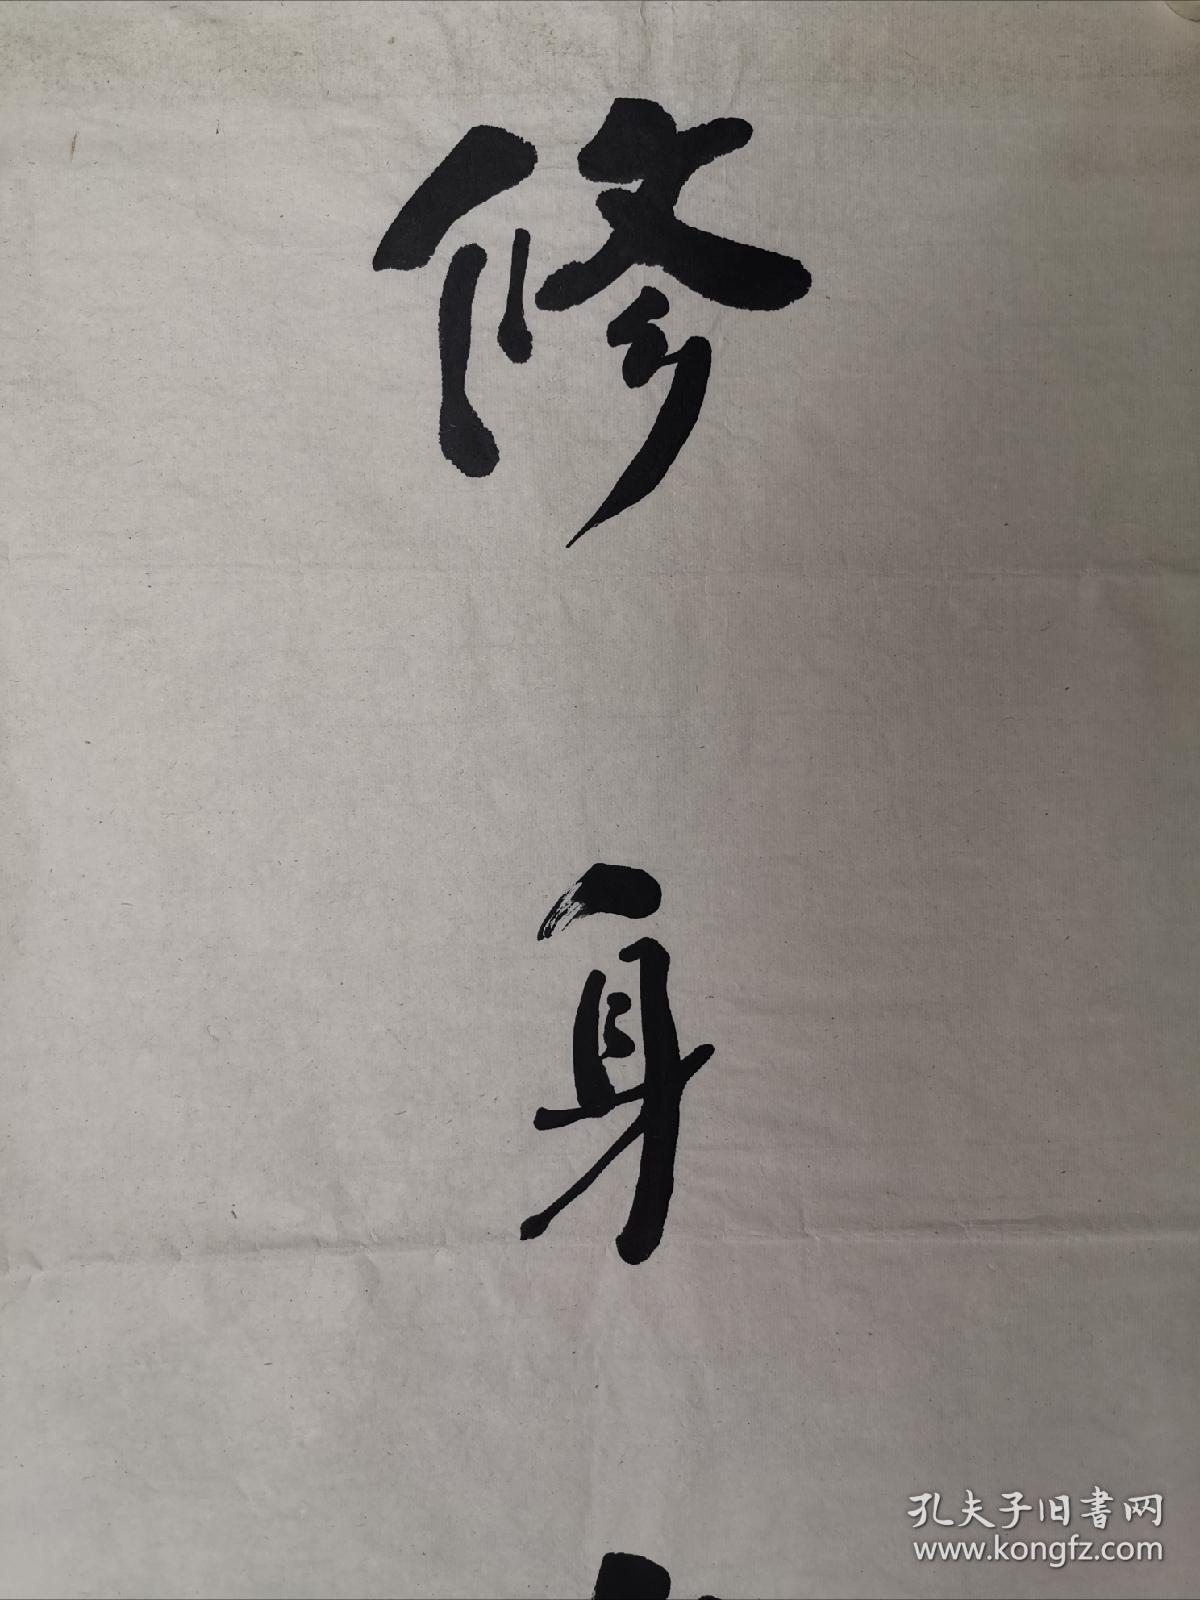 修身
孔夫子旧書网
www.kongfz.com